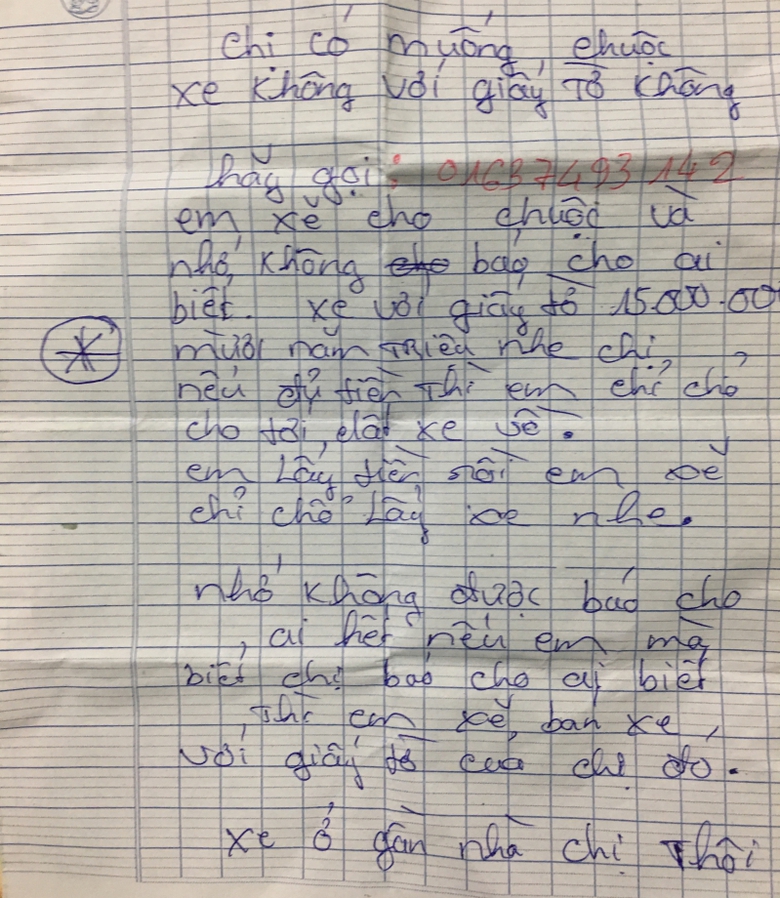 chị có muống chuộc
xe không với giấy tờ không
hãy gọi: 01637493142
em xẻ cho chuộc và
nhớ không báo cho ai
biết. xe với giấy tờ 15.000.00
mười năm triệu nhe chị
nếu đủ tiền thì em chỉ chỏ
cho tới dắt xe về.
em lấy tiền rồi em xẻ
chỉ chỏ lấy xe nhe.
nhớ không được báo cho
ai hết nếu em mà
biết chị báo cho ai biết
thì em xẻ bán xe
với giấy tờ của chị đó.
xe ở gần nhà chị thôi